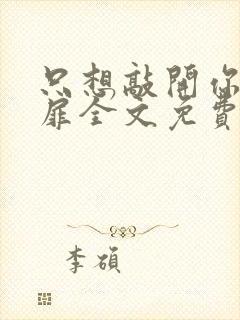 只想敲開你
扉全文免費
李碩